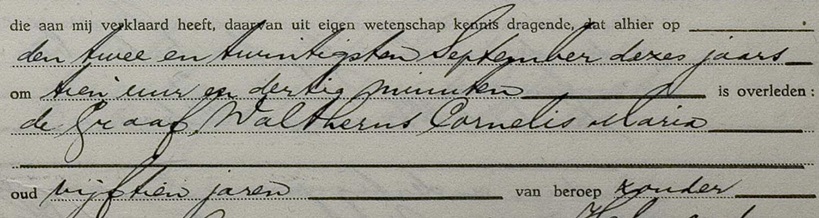 die aan mij verklaard heeft, daarvan uit eigen wetenschap kennis dragende, dat alhier op
den twee en twintigsten September dezes jaars
om tien uur en dertig minuten is overleden :
de Graaf Waltherus Cornelis Maria
oud vijftien jaren van beroep zonder